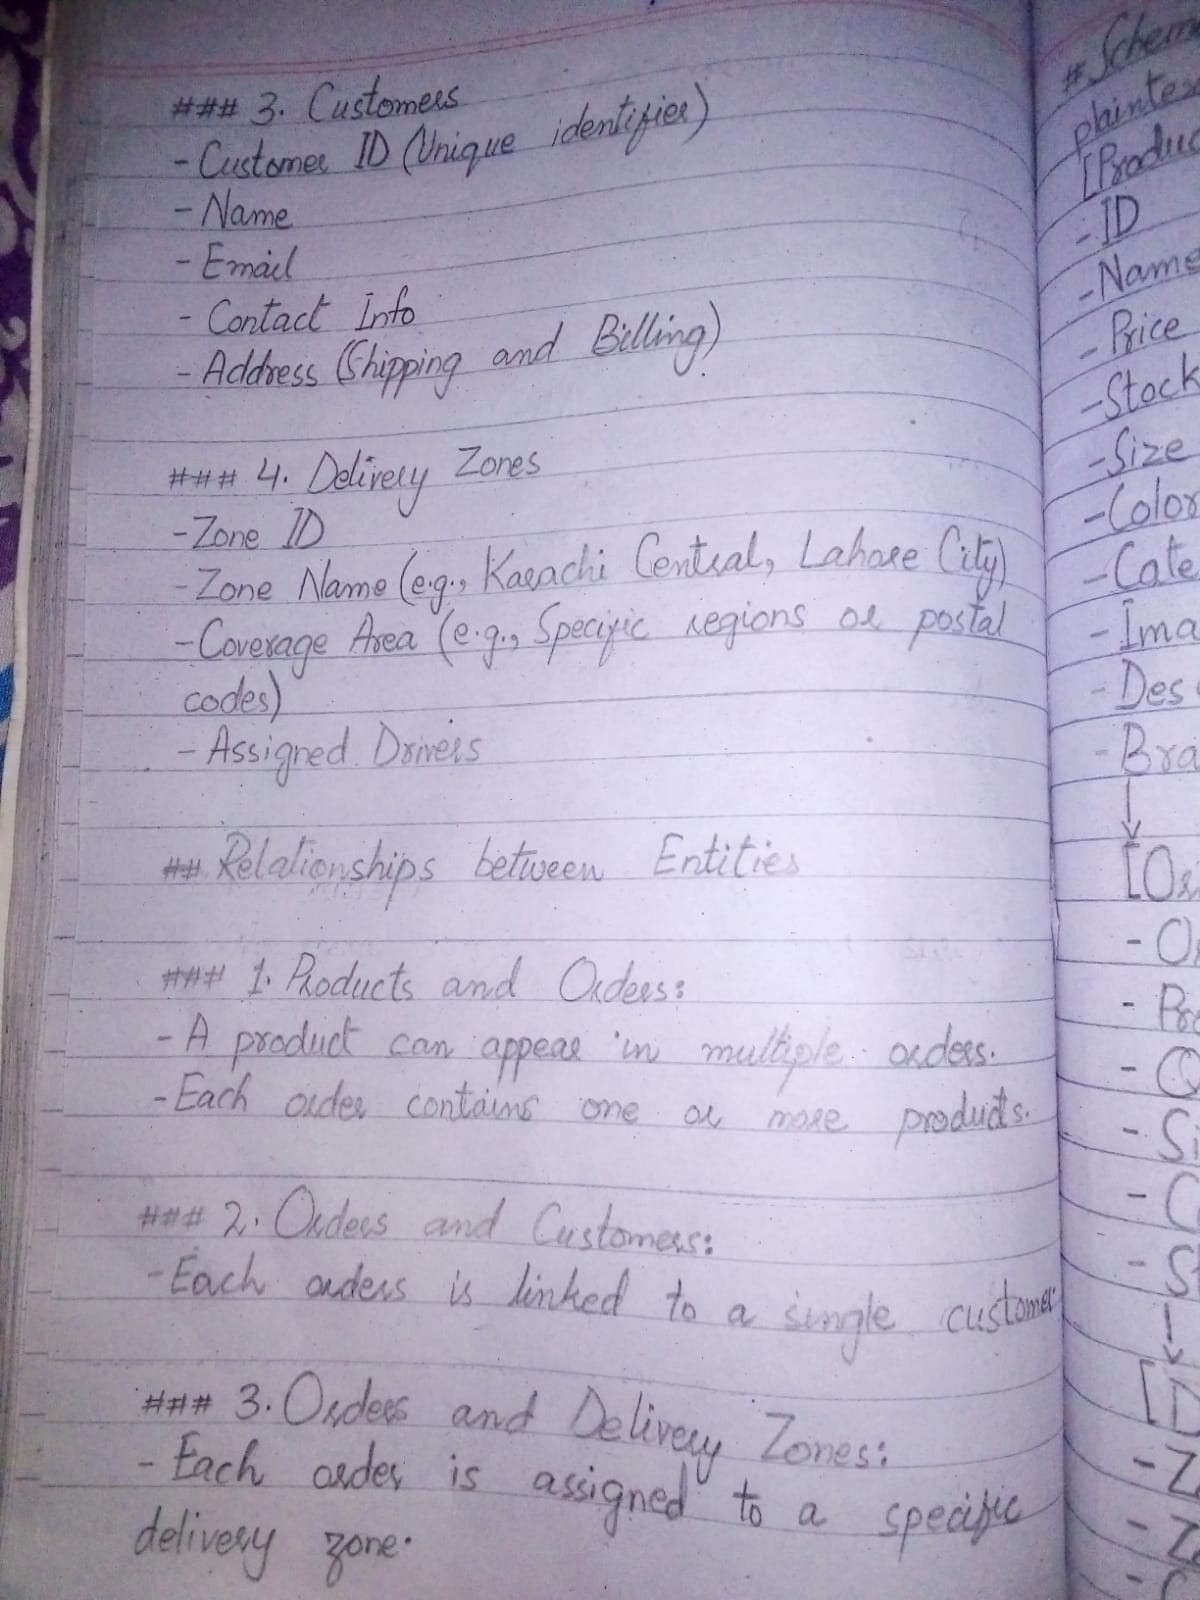 ### 3. Customers
- Customer ID (Unique identifier)
- Name
- Email
- Contact Info
- Address (Shipping and Billing)
### 4. Delivery Zones
- Zone ID
- Zone Name (e.g., Karachi Central, Lahore City)
- Coverage Area (e.g., Specific regions or postal
codes)
- Assigned Drivers
## Relationships between Entities
### 1. Products and Orders:
- A product can appear in multiple orders.
- Each order contains one or more products.
### 2. Orders and Customers:
- Each orders is linked to a single customer.
### 3. Orders and Delivery Zones:
- Each order is assigned to a specific
delivery zone.
# Schem
plainte
[Produc
- ID
- Name
- Price
- Stock
- Size
- Color
- Cate
- Ima
- Des
- Bra
↓
[Or
- Pro
- Si
- C
- St
- Z